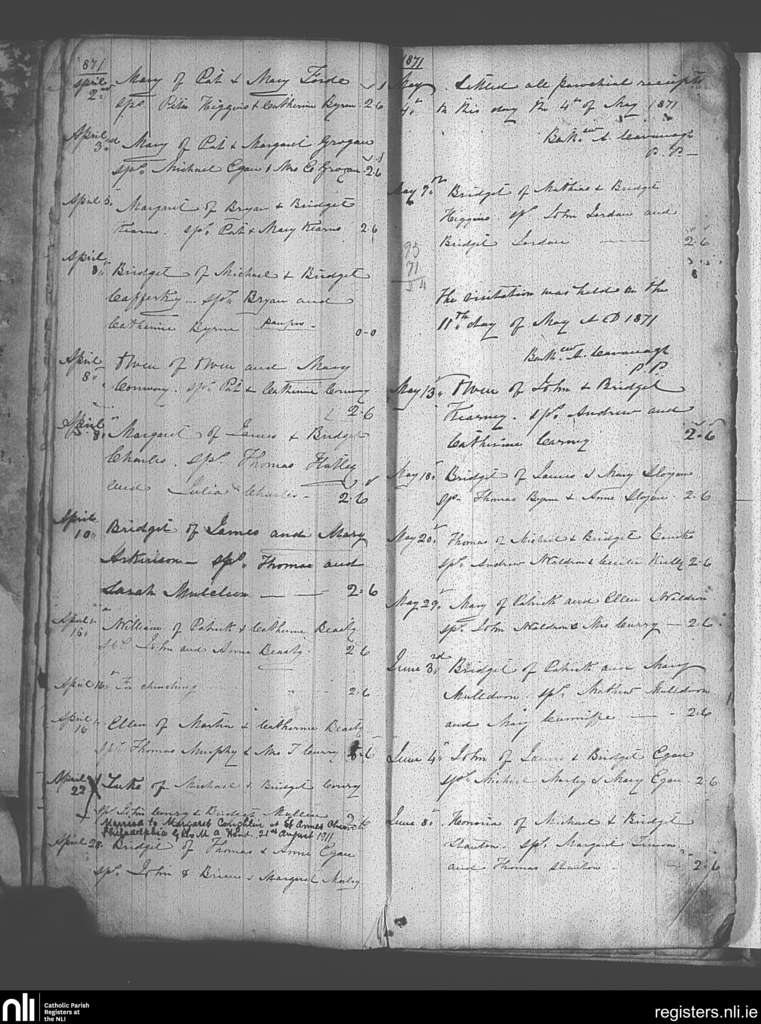 1871
April 2nd Mary of Pat & Mary Forde
sps. Peter Higgins & Catherine Byrne 2-6
April 3rd Mary of Pat & Margaret Grogan
sps. Michael Egan & Mrs E Grogan 2-6
April 5. Margaret of Bryan & Bridget
Kearns. sps. Pat & Mary Kearns 2-6
April 8th Bridget of Michael & Bridget
Cafferky sps. Bryan and
Catherine Byrne pauper 0-0
April 8th Owen of Owen and Mary
Conway. sps. Pat & Catherine Conway
2-6
April 8th Margaret of James & Bridget
Charles. sps. Thomas Flatley
and Julia Charles - 2-6
April 10th Bridget of James and Mary
sps. Thomas and
Sarah 2-6
April 16th William of Patrick & Catherine Beasty
sps. John and Anne Beasty. 2-6
April 16th For churching " " 2-6
April 16th Ellen of Martin & Catherine Beasty
sps. Thomas Murphy & Mrs T Curry 2-6
April 22 X Luke of Michael & Bridget Curry
sps John Curry & Bridget Mullen
Married to Margaret Coughlin at St Annes Church
Philadelphia by Rev M A 21st August 1911
April 28. Bridget of Thomas & Anne Egan
sps. John & Margaret
1871
May 4th Settled all parochial receipts
to this day the 4th of May 1871
Barth.ew A. Cavanagh
P. P.
May 9th Bridget of Mathias & Bridget
Higgins. sps. John Jordan and
Bridget Jordan 2-6
95
71
24
The visitation was held on the
11th day of May A D 1871
Barth.ew A. Cavanagh
P P
May 13th Owen of John & Bridget
Kearney. sps. Andrew and
Catherine Carney 2-6
May 18th Bridget of James & Mary Sloyan
sps. Thomas Byrne & Anne Sloyan 2-6
May 20th Thomas of Michael & Bridget
sps. Andrew Waldron & Cecilia Kelly 2-6
May 29th Mary of Patrick and Ellen Waldron
sps. John Waldron & Mrs Curry - 2-6
June 3rd Bridget of Patrick and Mary
Muldoon. sps. Mathew Muldoon
and Mary 2-6
June 4th John of James & Bridget Egan
sps. Michael Morley & Mary Egan 2-6
June 8th Honoria of Michael & Bridget
Stanton. sps. Margaret
and Thomas Stanton - 2-6
nli
Catholic Parish
Registers at
the NLI
registers.nli.ie